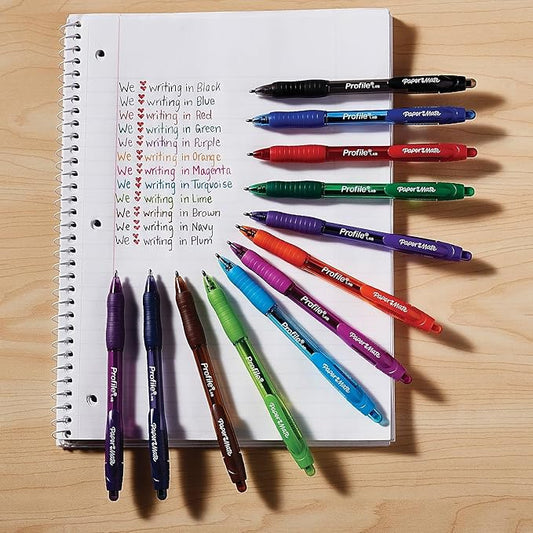 We ❣ writing in Black
We ❣ writing in Blue
We ❣ writing in Red
We ❣ writing in Green
We ❣ writing in Purple
We ❣ writing in Orange
We ❣ writing in Magenta
We ❣ writing in Turquoise
We ❣ writing in Lime
We ❣ writing in Brown
We ❣ writing in Navy
We ❣ writing in Plum
Profile PAPER MATE
Profile PAPER MATE
Profile PAPER MATE
Profile PAPER MATE
Profile PAPER MATE
Profile PAPER MATE
Profile PAPER MATE
Profile PAPER MATE
Profile PAPER MATE
Profile PAPER MATE
Profile PAPER MATE
Profile PAPER MATE